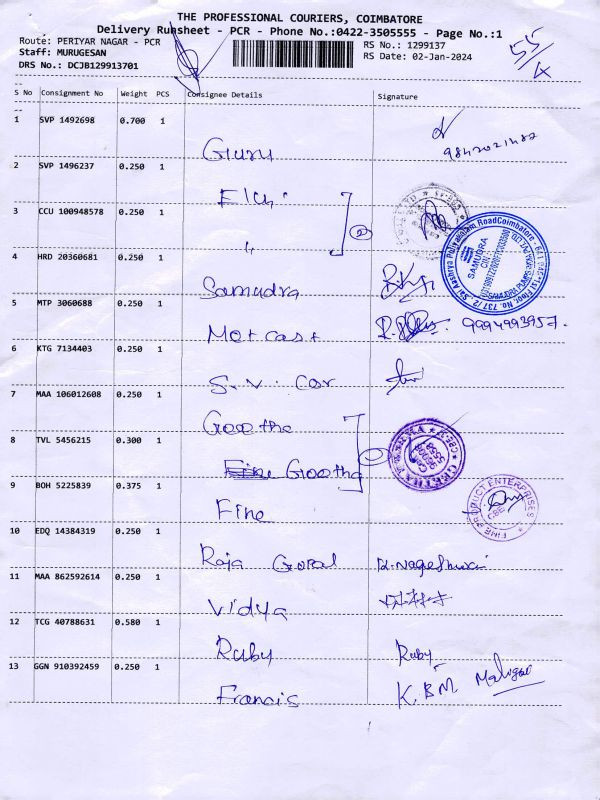 THE PROFESSIONAL COURIERS, COIMBATORE
Delivery Runsheet - PCR - Phone No.:0422-3505555 - Page No.:1
Route: PERIYAR NAGAR - PCR
RS No.: 1299137
Staff: MURUGESAN
RS Date: 02-Jan-2024
DRS No.: DCJB129913701
55/4
S No Consignment No Weight PCS Consignee Details Signature
1 SVP 1492698 0.700 1 Guru 9842021482
2 SVP 1496237 0.250 1
3 CCU 100948578 0.250 1 "
4 HRD 20360681 0.250 1 Samudra
5 MTP 3060688 0.250 1 Metcast 9994993957.
6 KTG 7134403 0.250 1 S.V. Car
7 MAA 106012608 0.250 1 Geetha
8 TVL 5456215 0.300 1 Fine Geetha
9 BOH 5225839 0.375 1 Fine
FINE PRODUCT ENTERPRISES
CBE
10 EDQ 14384319 0.250 1 Raja Gopal R. Nageshwari
11 MAA 862592614 0.250 1 Vidya
12 TCG 40788631 0.580 1 Ruby Ruby
13 GGN 910392459 0.250 1 Francis K.BM